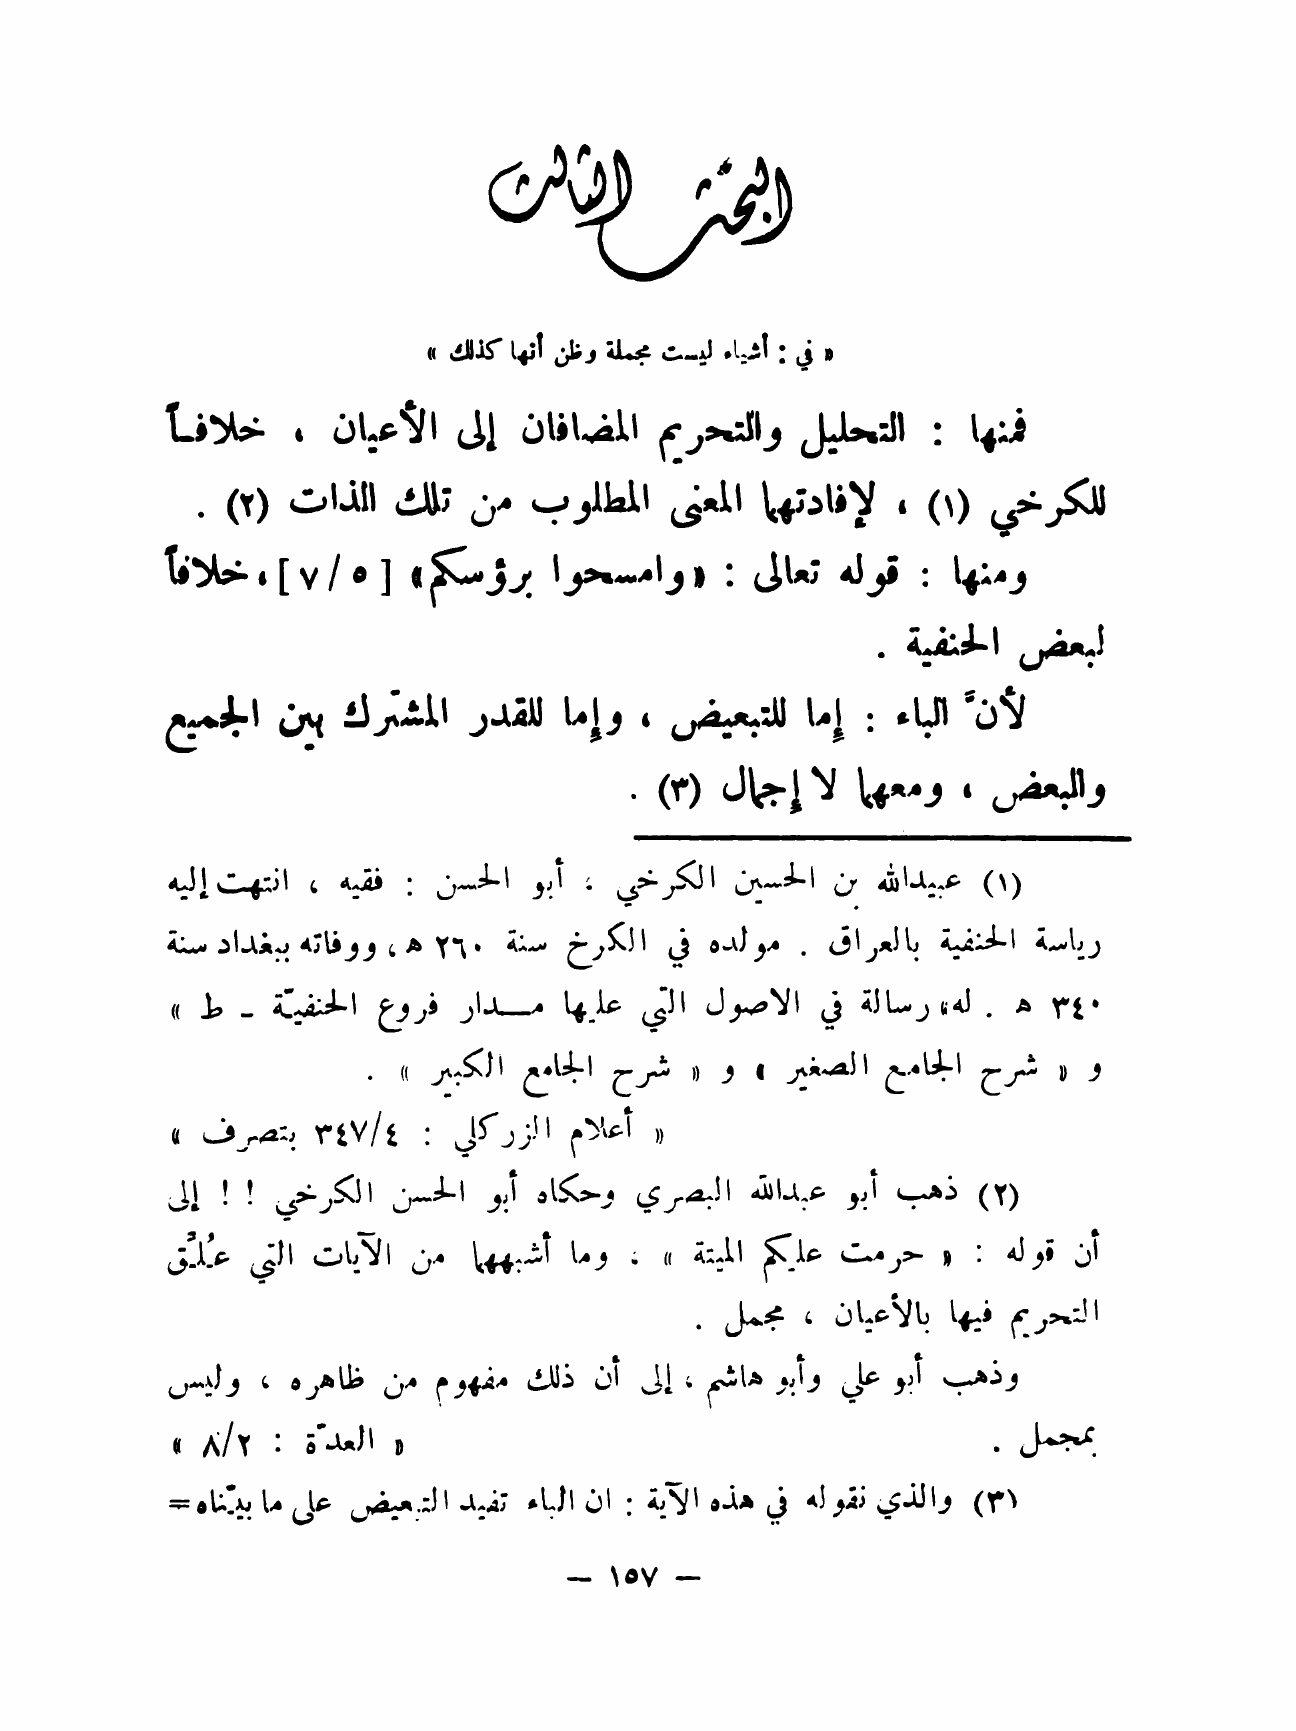 البحث الثالث
« في : أشياء ليست مجملة وظن أنها كذلك »
فمنها : التحليل والتحريم المضافان إلى الأعيان ، خلافاً
للكرخي (١) ، لإفادتهما المعنى المطلوب من تلك الذات (٢) .
ومنها : قوله تعالى : «وامسحوا برؤسكم» [ ٥ / ٧ ] ، خلافاً
لبعض الحنفية .
لأنَّ الباء : إما للتبعيض ، وإما للقدر المشترك بين الجميع
والبعض ، ومعهما لا إجمال (٣) .
(١) عبيدالله بن الحسين الكرخي ، أبو الحسن : فقيه ، انتهت إليه
رياسة الحنفية بالعراق . مولده في الكرخ سنة ٢٦٠ هـ ، ووفاته ببغداد سنة
٣٤٠ هـ . له « رسالة في الاصول التي عليها مدار فروع الحنفيّة ـ ط »
و « شرح الجامع الصغير » و « شرح الجامع الكبير » .
« أعلام الزركلي : ٣٤٧/٤ بتصرف »
(٢) ذهب أبو عبدالله البصري وحكاه أبو الحسن الكرخي ! ! إلى
أن قوله : « حرمت عليكم الميتة » ، وما أشبهها من الآيات التي عُلّق
التحريم فيها بالأعيان ، مجمل .
وذهب أبو علي وأبو هاشم ، إلى أن ذلك مفهوم من ظاهره ، وليس
بمجمل . « العدّة : ٨/٢ »
(٣) والذي نقوله في هذه الآية : ان الباء تفيد التبعيض على ما بيّناه=
— ١٥٧ —